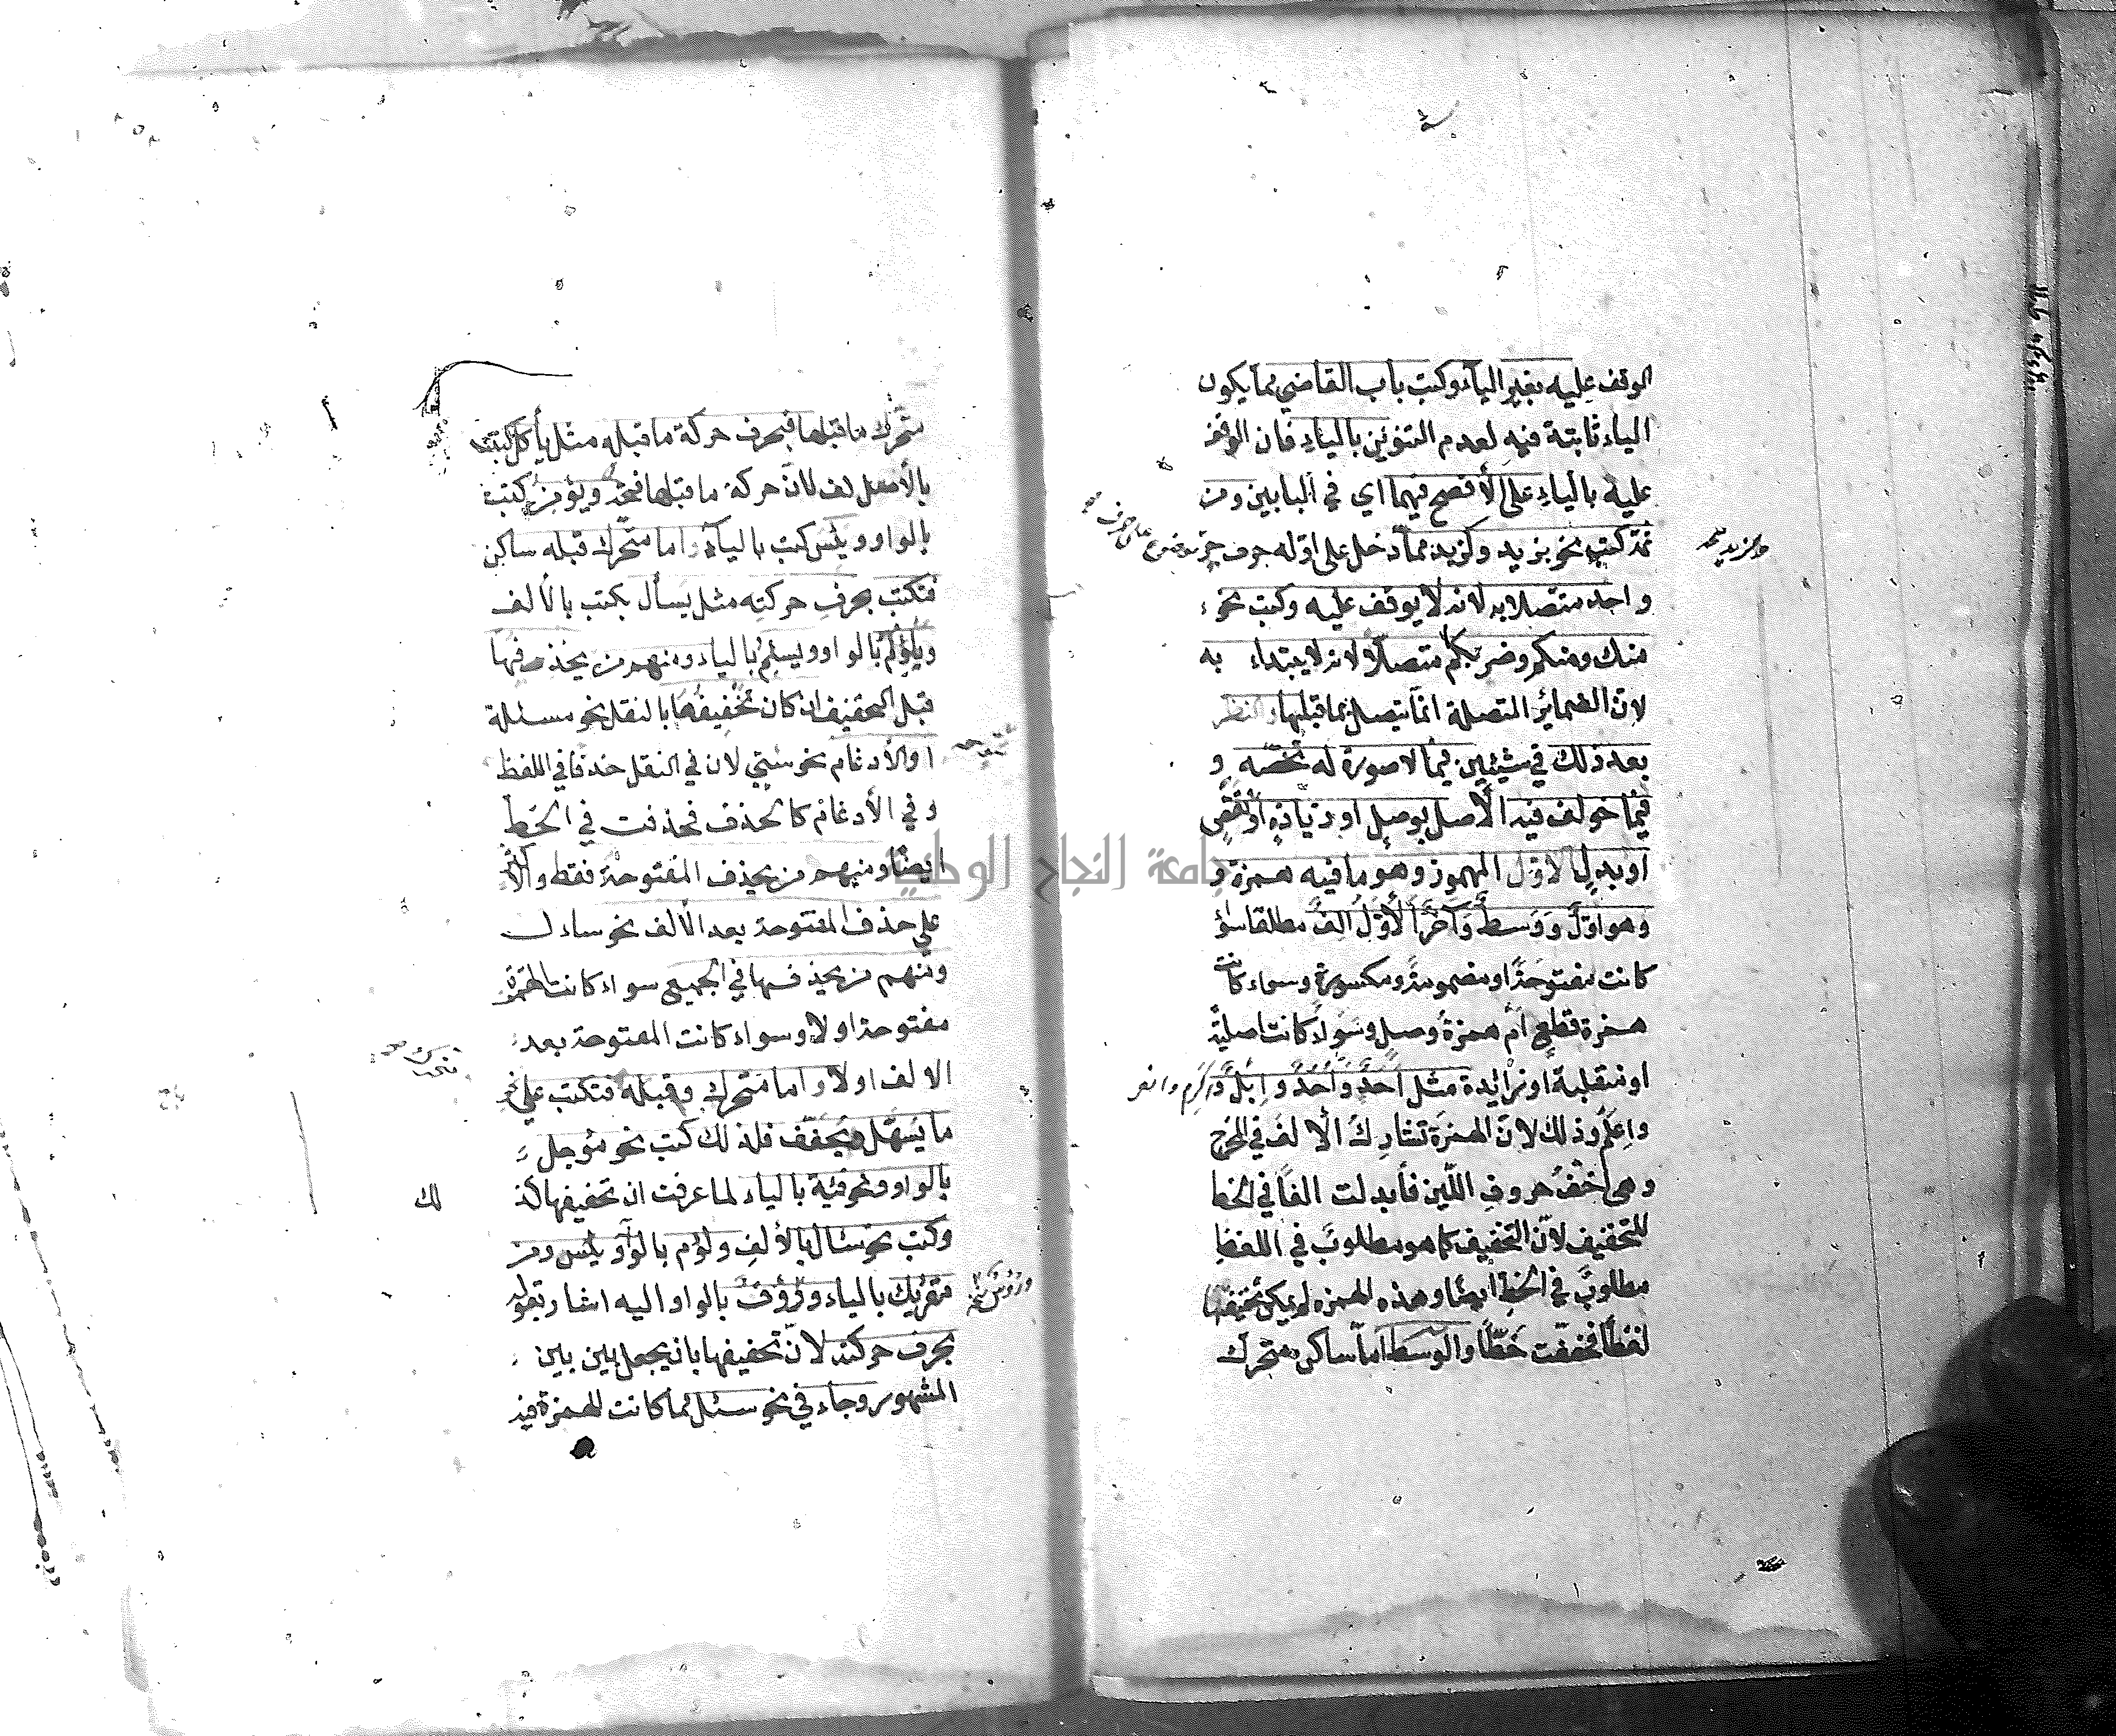 الوقف عليه بغير الياء وكتب باب القاضي مما يكون
الياء ثابتة فيه لعدم التنوين بالياء فان الوقف
عليه بالياء على الأفصح فيهما اي في البابين ومن
ثمة كتب نحو بزيد وكزيد مما دخل على اوله حرف جر
واحد متصلا به لانه لا يوقف عليه وكتب نحو
منك ومنكم وضربكم متصلا لانه لا يبتداء به
لان الضمائر المتصلة انما يتصل بما قبلها والنظر
بعد ذلك في شيئين فيما لا صورة له تخصه و
فيما خولف فيه الأصل بوصل او زيادة او نقص
او بدل الاول المهموز وهو ما فيه همزة و
وهو اول ووسط وآخر الأول الف مطلقا سواء
كانت مفتوحة او مضمومة ومكسورة وسواء كانت
همزة قطع ام همزة وصل وسواء كانت اصلية
او منقلبة او زائدة مثل احد وأحد وابل واكرم وانصر
واعلم وذلك لان الهمزة تشارك الألف في المخرج
وهي اخف حروف اللين فأبدلت الفا في الخط
للتخفيف لان التخفيف كما هو مطلوب في اللفظ
مطلوب في الخط ايضا وهذه الهمزة لم يمكن تخفيفها
لفظا فخففت خطا والوسط اما ساكن متحرك
متحرك ما قبلها فبحرف حركة ما قبله مثل يأكل كتبت
بالألف لان حركة ما قبلها فتحة ويؤمن كتبت
بالواو وبئس كتب بالياء واما متحرك قبله ساكن
فتكتب بحرف حركته مثل يسأل يكتب بالألف
ويلؤم بالواو ويسئم بالياء ومنهم من يحذفها
قبل التخفيف ان كان تخفيفها بالنقل نحو مسئلة
او الأدغام نحو شيئ لان في النقل حذفا في اللفظ
وفي الأدغام كالحذف فحذفت في الخط
ايضا ومنهم من يحذف المفتوحة فقط والأكثر
على حذف المفتوحة بعد الألف نحو ساءل
ومنهم من يحذفها في الجميع سواء كانت الهمزة
مفتوحة او لا وسواء كانت المفتوحة بعد
الالف اولا واما متحرك وقبله فتكتب على نحو
ما يسهل ويخفف فلذلك كتب نحو مؤجل
بالواو ونحو فئة بالياء لما عرفت ان تخفيفها كذ
لك
وكتب نحو سأل بالألف ولؤم بالواو ويئس ومن
مقرئك بالياء ورؤف بالواو اليه اشار بقوله
بحرف حركته لان تخفيفها بان يجعل بين بين
المشهور وجاء في نحو سئل مما كانت للهمزة فيه
جامعة النجاح الوطنية